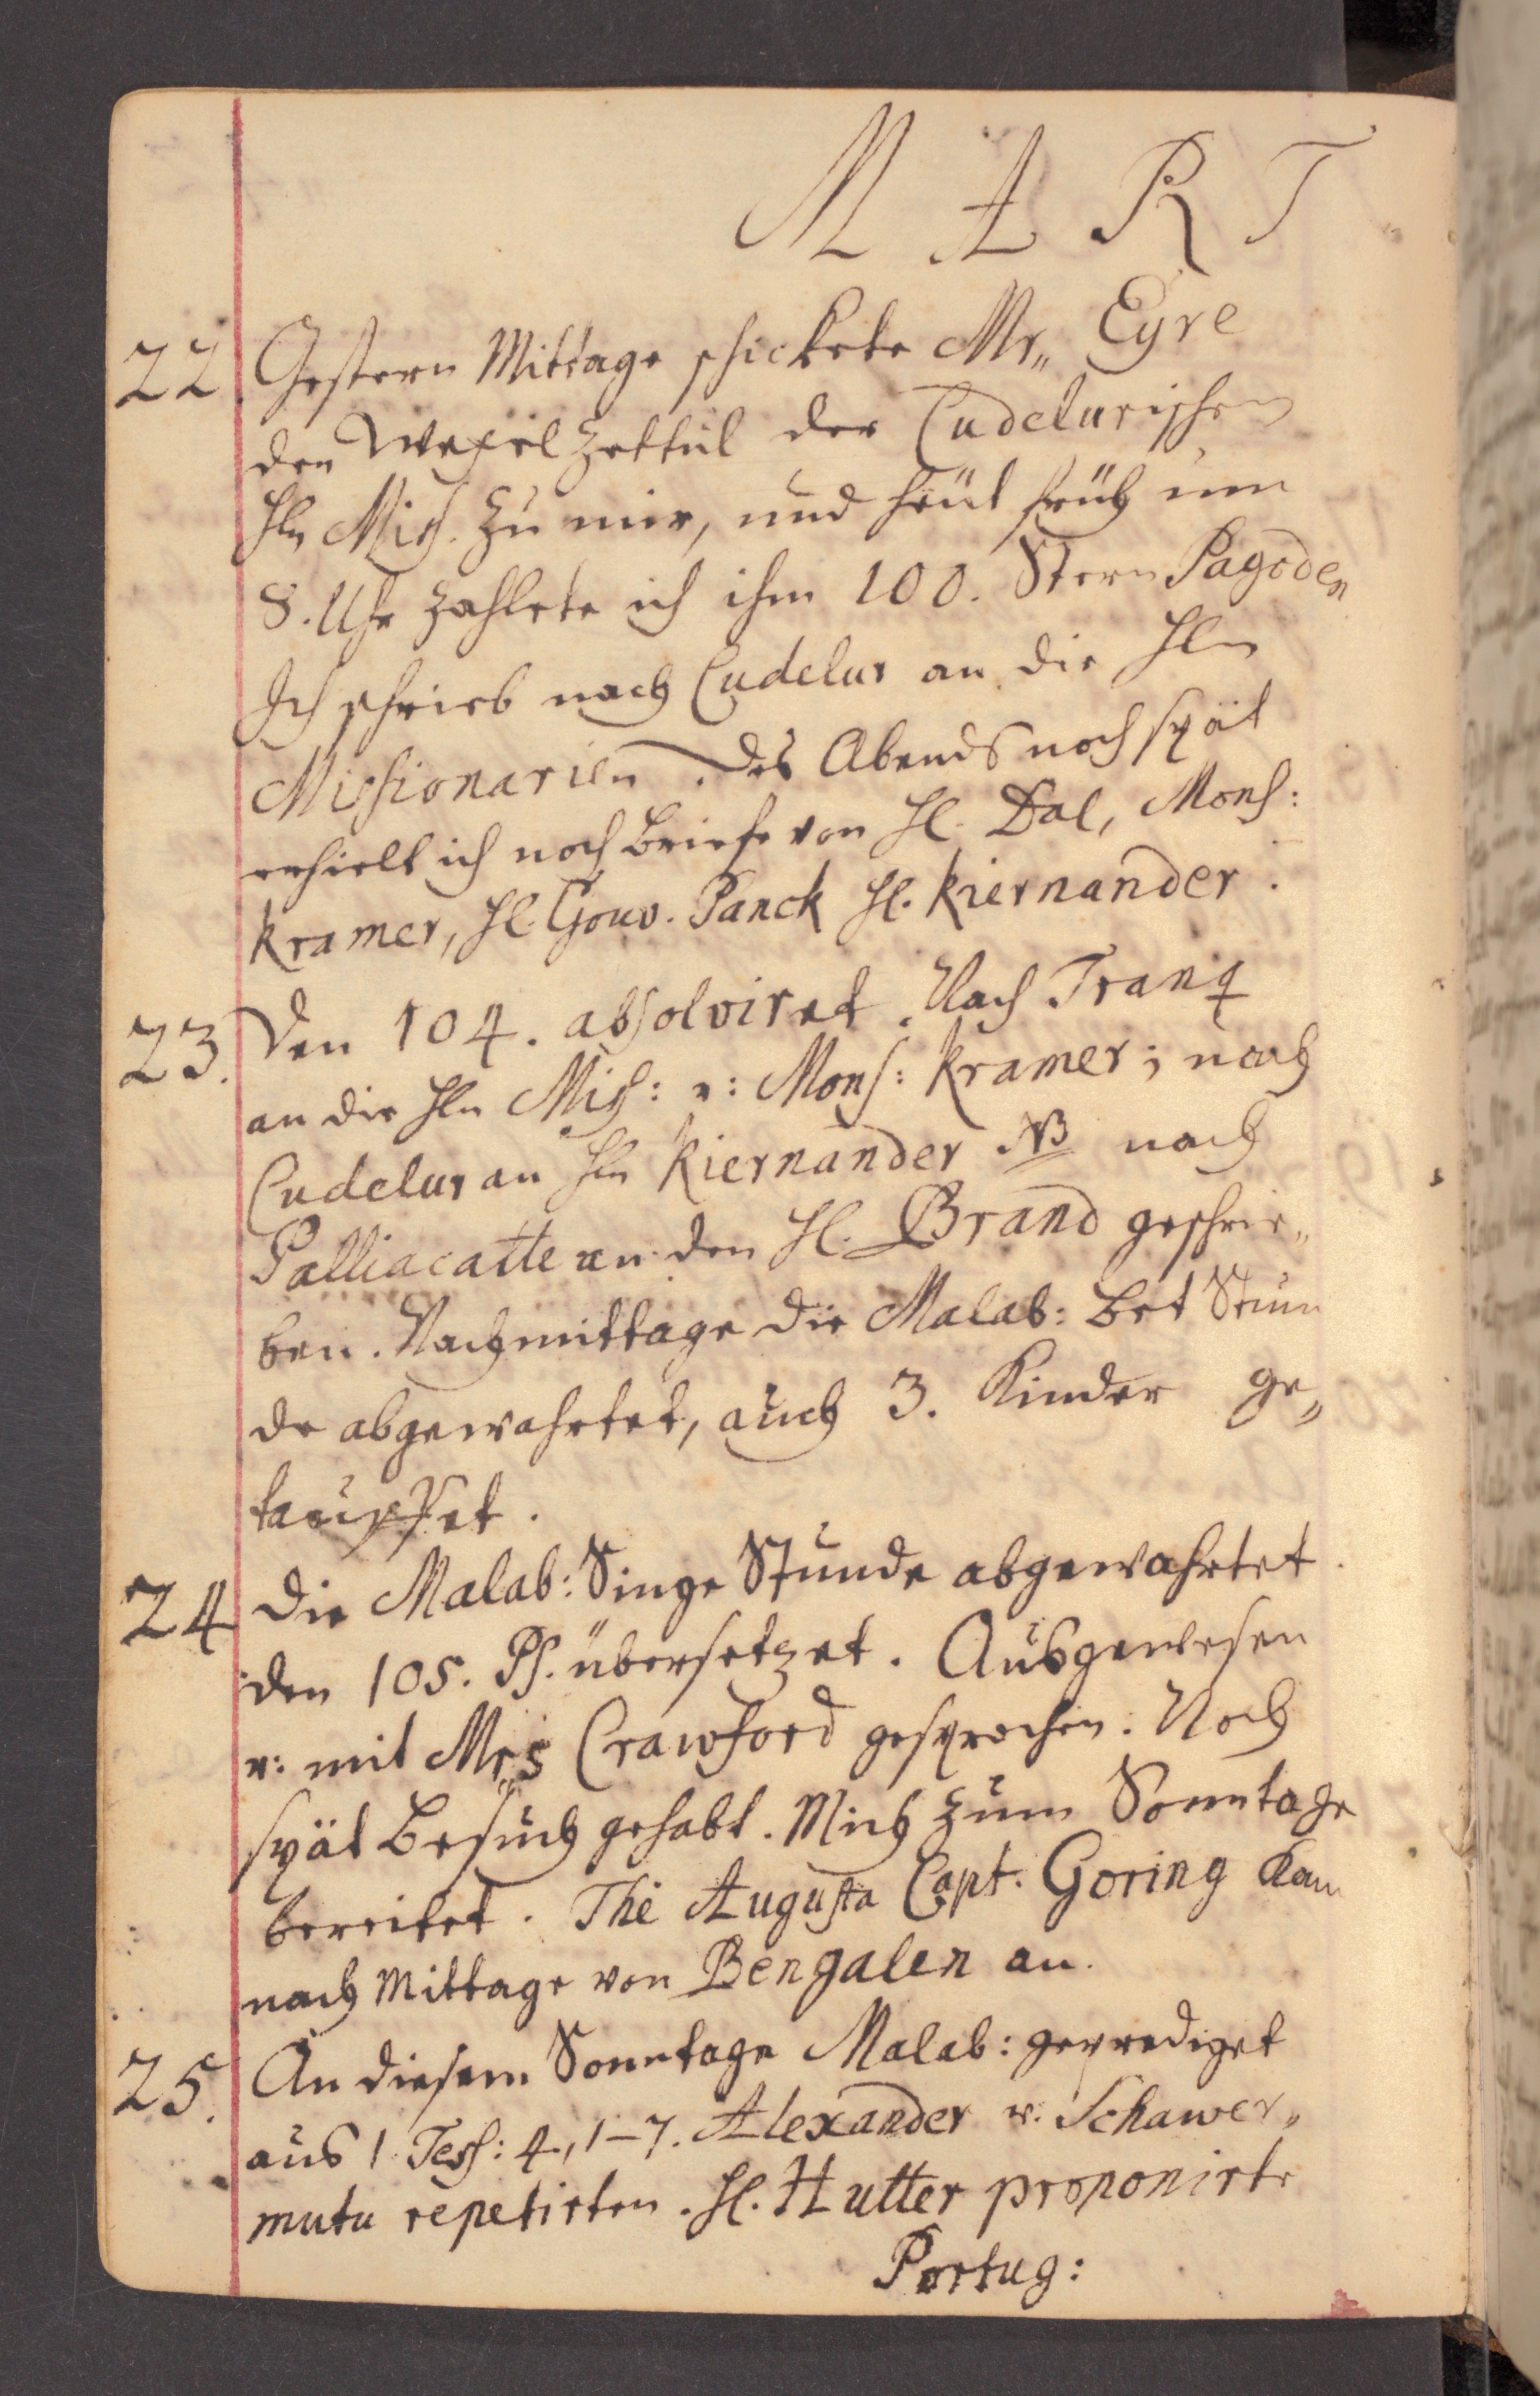 M A R T
22 Gestern Mittage schickete Mr„ Eyre
den Wexel Zettul der Cudelurischen
Hln Miss. zu mir, und heut früh um
8. Uhr zahlete ich ihm 100. Stern Pagoden
Ich schrieb nach Cudelur an die Hln
Missionarien. Des Abends noch spät
erhielt ich noch Briefe von Hl. Dal, Mons:
Kramer, Hl. Gouv. Panck Hl. Kiernander.
23. Den 104. absolviret. Nach Tranq
an die Hln Miss: u: Mons: Kramer; nach
Cudelur an Hln Kiernander NB nach
Palliacatte an den Hl. Brand geschrie„
ben. Nachmittage die Malab: Bet Stun
de abgewahrtet, auch 3. Kinder ge„
tauffet.
24 Die Malab: Singe Stunde abgewahrtet.
den 105. Ps. übersetzet. Ausgewesen
u: mit Mrs Crawford gesprochen. Noch
spät Besuch gehabt. Mich zum Sonntage
bereitet. The Augusta Capt. Goring kam
nach Mittage von Bengalen an.
25. An diesem Sonntage Malab: geprediget
aus 1 Tess: 4, 1-7. Alexander u. Schawer„
mutu repetirten. Hl. Hutter proponirte
Portug: